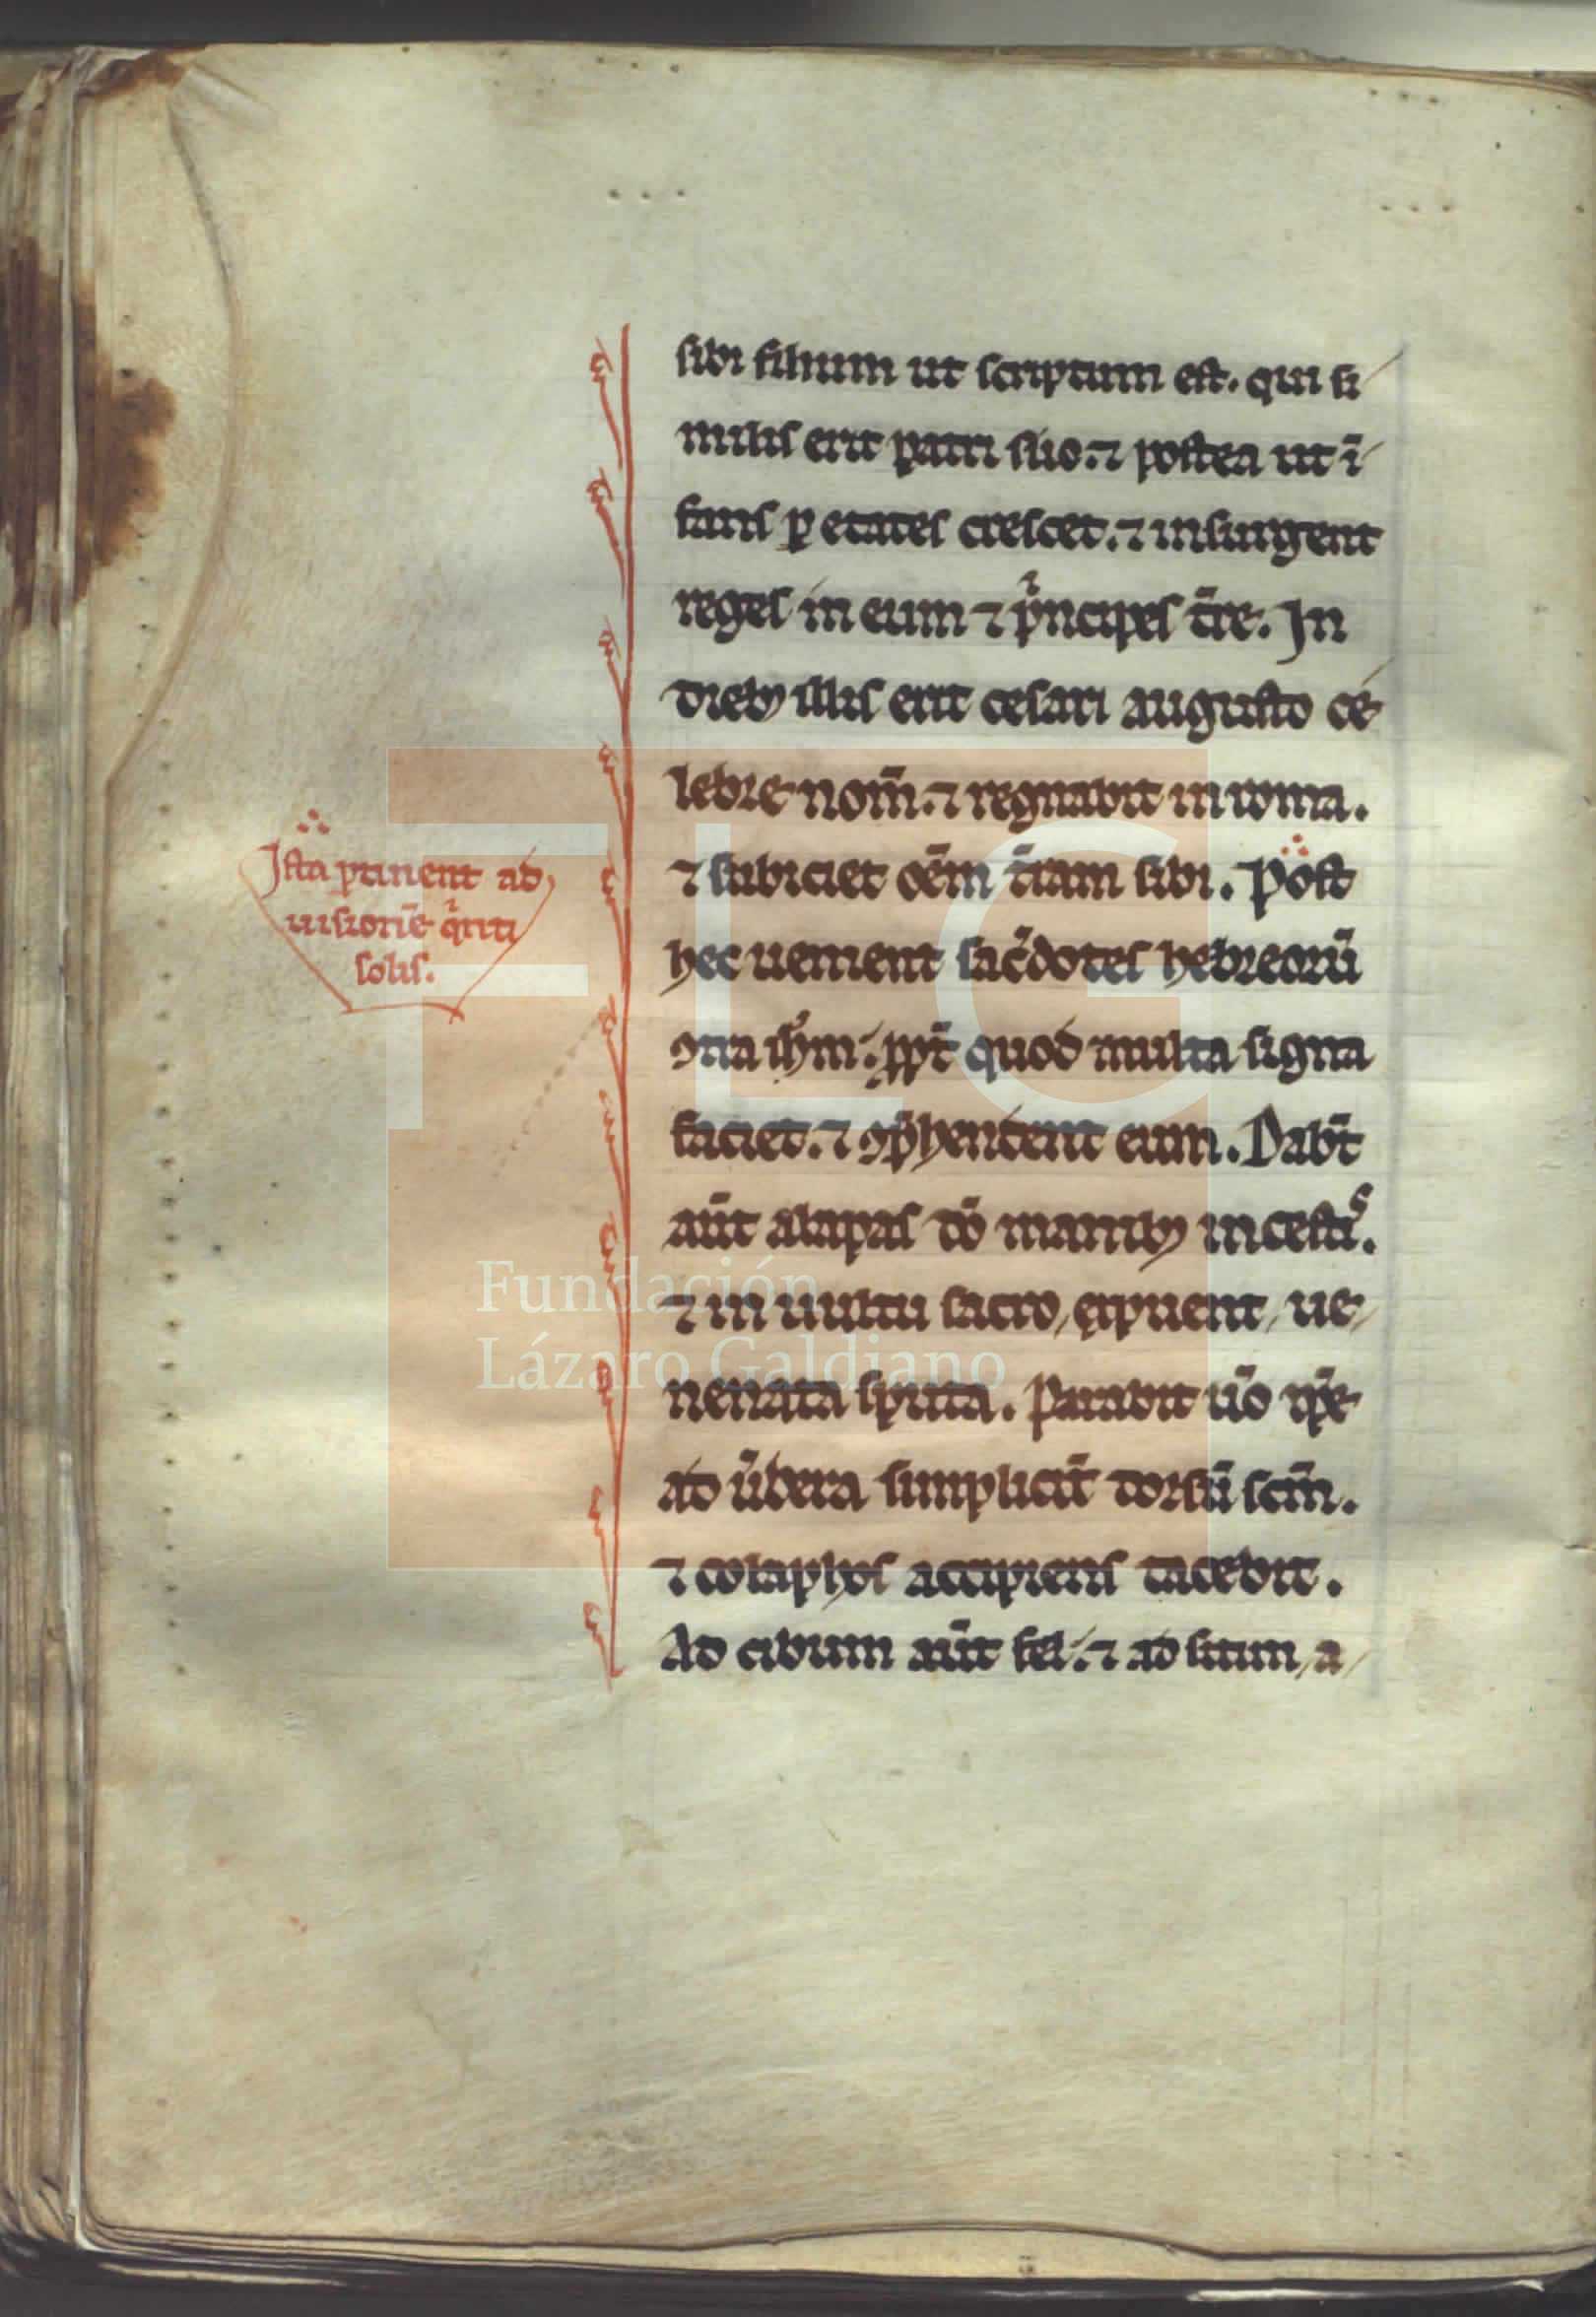 sibi filium ut scriptum est. qui si
milis erit patri suo. ⁊ postea ut ī
fans ꝑ etates crescet. ⁊ insurgent
reges in eum ⁊ pͥncipes t̄re. In
dieb; illis erit cesari augusto ce
lebre nom̄. ⁊ regnabit in roma.
⁊ subiciet oēm t̄ram sibi. Post
hec uenient sac̄dotes hebreorū
ꝯtra ih̄m. ꝓpt̄ quod multa signa
faciet. ⁊ ꝯp̄hendent eum. Dabt̄
aūt alapas dō manib; incestis.
⁊ in uultu sacro, expuent, ue
nenata sputa. Parabit ūo xp̄e
ad ūbera simplicit̄ dorsū sc̄m.
⁊ colaphos accipiens tacebit.
Ad cibum aūt fel. ⁊ ad sitim, a
Ista ꝑtinent ad
uisionē qͥnti
solis.
FLG
Fundación
Lázaro Galdiano